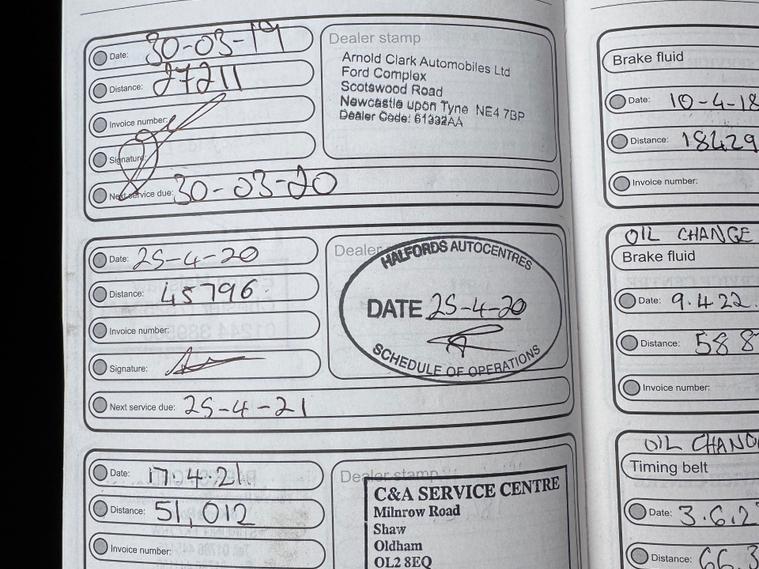 Date: 30-03-19
Distance: 27211
Invoice number:
Signature:
Next service due: 30-03-20
Dealer stamp
Arnold Clark Automobiles Ltd
Ford Complex
Scotswood Road
Newcastle upon Tyne NE4 7BP
Dealer Code: 61332AA
Date: 25-4-20
Distance: 45796
Invoice number:
Signature:
Next service due: 25-4-21
Dealer
HALFORDS AUTOCENTRES
DATE 25-4-20
SCHEDULE OF OPERATIONS
Date: 17.4.21
Distance: 51,012
Invoice number:
Dealer stamp
C&A SERVICE CENTRE
Milnrow Road
Shaw
Oldham
OL2 8EQ
Brake fluid
Date: 10-4-18
Distance: 18429
Invoice number:
OIL CHANGE
Brake fluid
Date: 9.4.22
Distance: 588
Invoice number:
OIL CHANG
Timing belt
Date: 3.6.2
Distance: 66.3